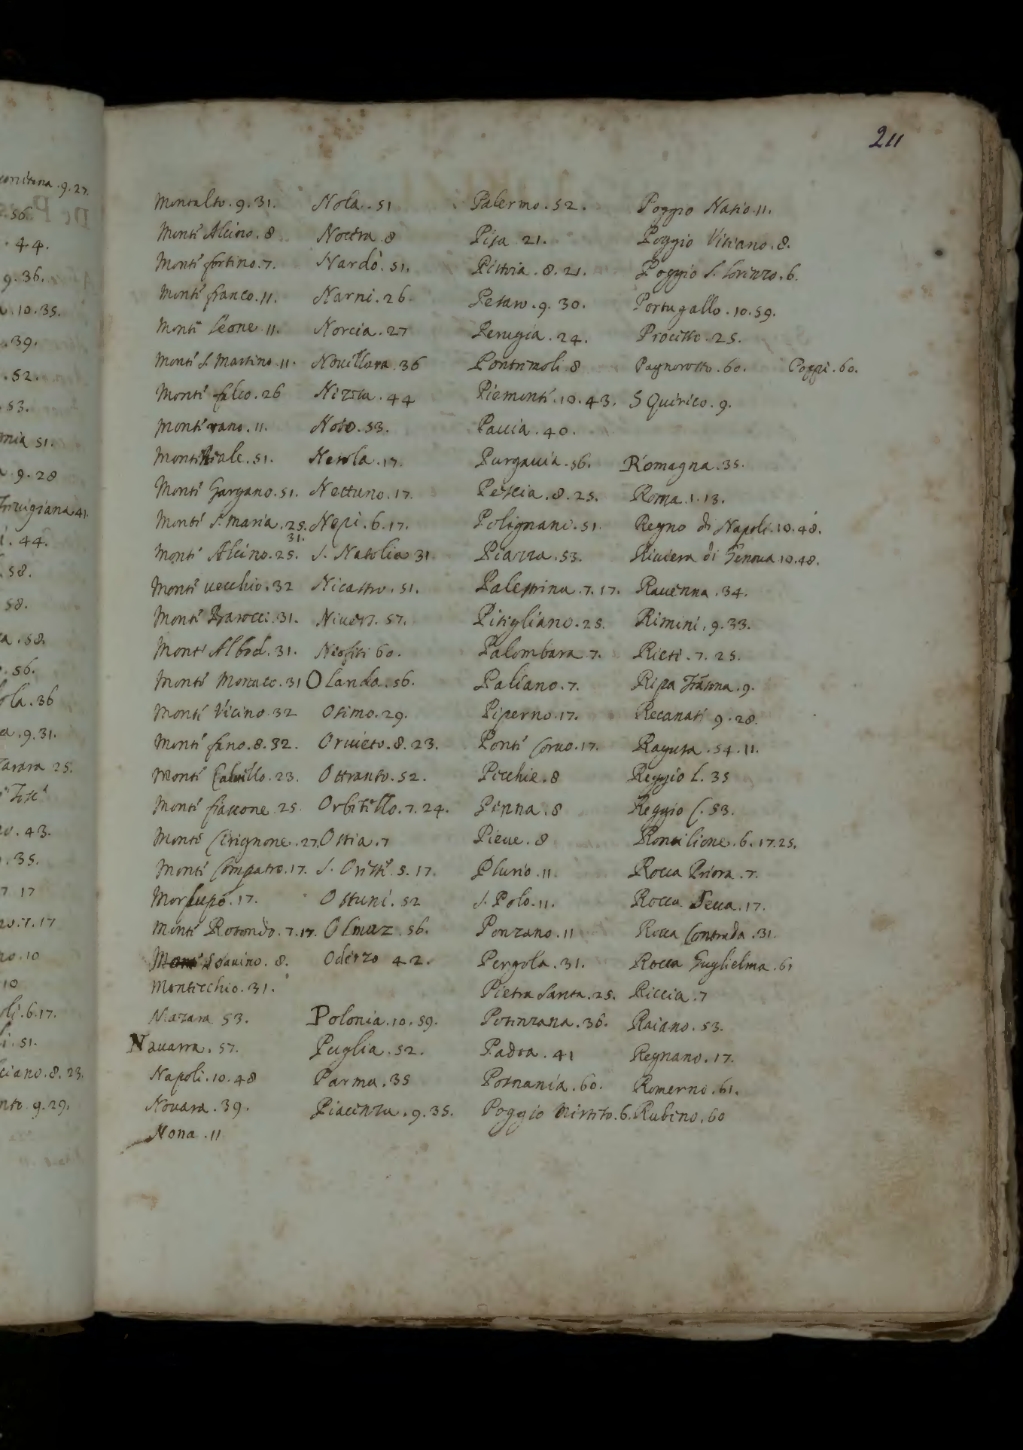 211
Montalto.9.31.
Monti Alcino.8
Monti fortino.7.
Monti franco.11.
Monti Leone.11.
Monti S. Martino.11.
Monti falco.26
Monti rano.11.
Monti .51.
Monti Gargano.51.
Monti S. Maria.25.
Monti Alcino.25.31.
Monti vecchio.32
Monti Barocci.31.
Monti Albod.31.
Monti Monaco.31
Monti Vicino.32
Monti fano.8.32.
Monti Calvillo.23.
Monti fiascone.25.
Monti Citignone.27.
Monti Compatro.17.
Morlupo.17.
Monti Rotondo.7.17.
Soauino.8.
Monticchio.31.
Mazara 53.
Nauarra.57.
Napoli.10.48
Nouara.39.
Nona.11
Nola.51
Nocera 8
Nardò.51.
Narni.26.
Norcia.27
Nouillara.36
Nizza.44
Noto.53.
Nerola.17.
Nettuno.17.
Nepi.6.17.
S. Natolia 31
Nicastro.51.
Niuers.57.
Neofiti 60.
Olanda.56.
Osimo.29.
Oruieto.8.23.
Otranto.52.
Orbitello.7.24.
Ostia.7
S. Oreste.5.17.
Ostuni.52
Olmuz.56.
Oderzo 42.
Polonia.10.59.
Puglia.52.
Parma.35
Piacenza.9.35.
Palermo.52.
Pisa 21.
Pistoia.8.21.
Pesaro.9.30.
Perugia.24.
Pontrimoli 8
Piemonti.10.43.
Pauia.40.
Purgauia.56.
Pescia.8.25.
Polignano.51.
Piazza.53.
Palestrina.7.17.
Pitigliano.25.
Palombara 7.
Paliano.7.
Piperno.17.
Ponti Coruo.17.
Picchie.8
Pinna.8
Pieue.8
Plurio.11.
S. Polo.11.
Ponzano.11
Pergola.31.
Pietra Santa.25.
Potenzana.36.
Padoa.41
Posnania.60.
Poggio Mirteto.6.
Poggio Natio.11.
Poggio Vitiano.8.
Poggio S. Lorenzo.6.
Portugallo.10.59.
Proceno.25.
Pagnorotto.60. Poggi.60.
S Quirico.9.
Romagna.35.
Roma.1.13.
Regno di Napoli.10.48.
Riuiera di Genoua 10.48.
Rauenna.34.
Rimini.9.33.
Rieti.7.25.
Ripa Transona.9.
Recanati 9.28.
Ragusa.54.11.
Reggio L.35
Reggio C.53.
Ronciglione.6.17.25.
Rocca Priora.7.
Rocca Secca.17.
Rocca Contrada.31.
Rocca Guglielma.61
Riccia.7
Raiano.53.
Regnano.17.
Romerno.61.
Rubino.60